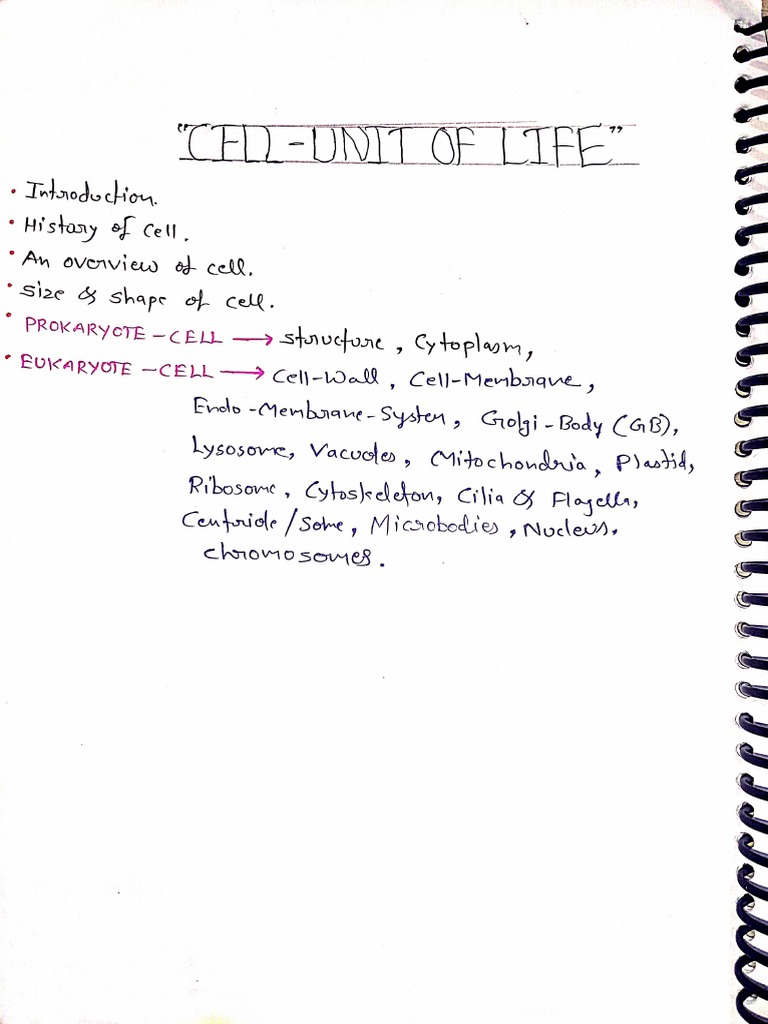 "CELL-UNIT OF LIFE"
• Introduction.
• History of Cell.
• An overview of cell.
• Size & shape of cell.
• PROKARYOTE-CELL → structure, Cytoplasm,
• EUKARYOTE-CELL → Cell-Wall, Cell-Membrane,
Endo-Membrane-System, Golgi-Body (GB),
Lysosome, Vacuoles, Mitochondria, Plastid,
Ribosome, Cytoskeleton, Cilia & Flagella,
Centriole/Some, Microbodies, Nucleus,
chromosomes.